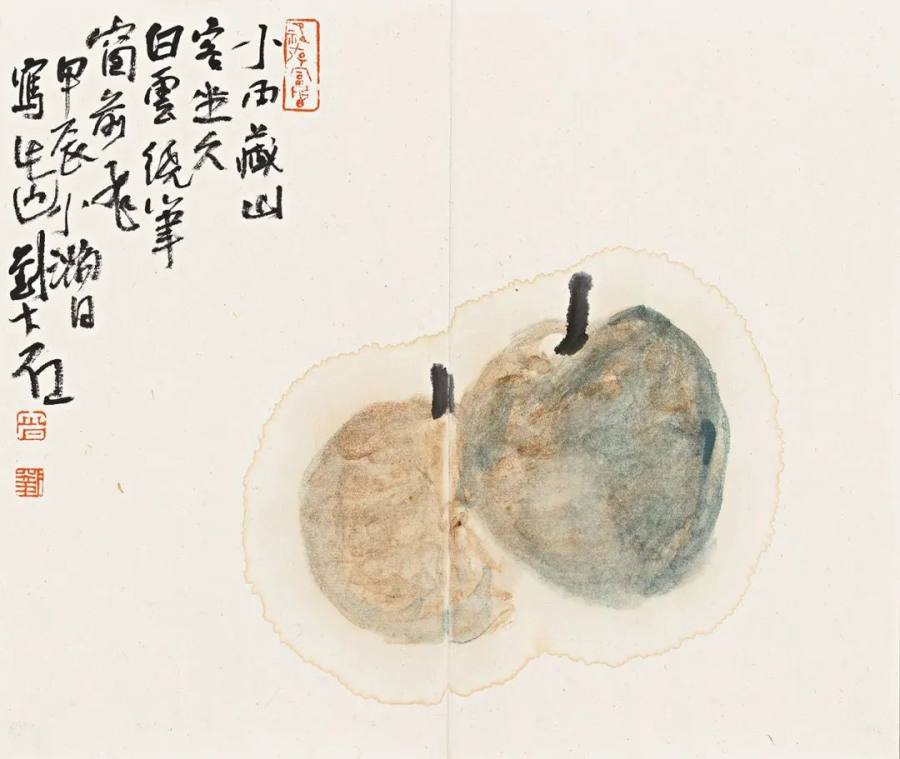 小雨藏山
客坐久
白雲繞筆
窗前飛
甲辰小滿日
寫生也劉大石
劉